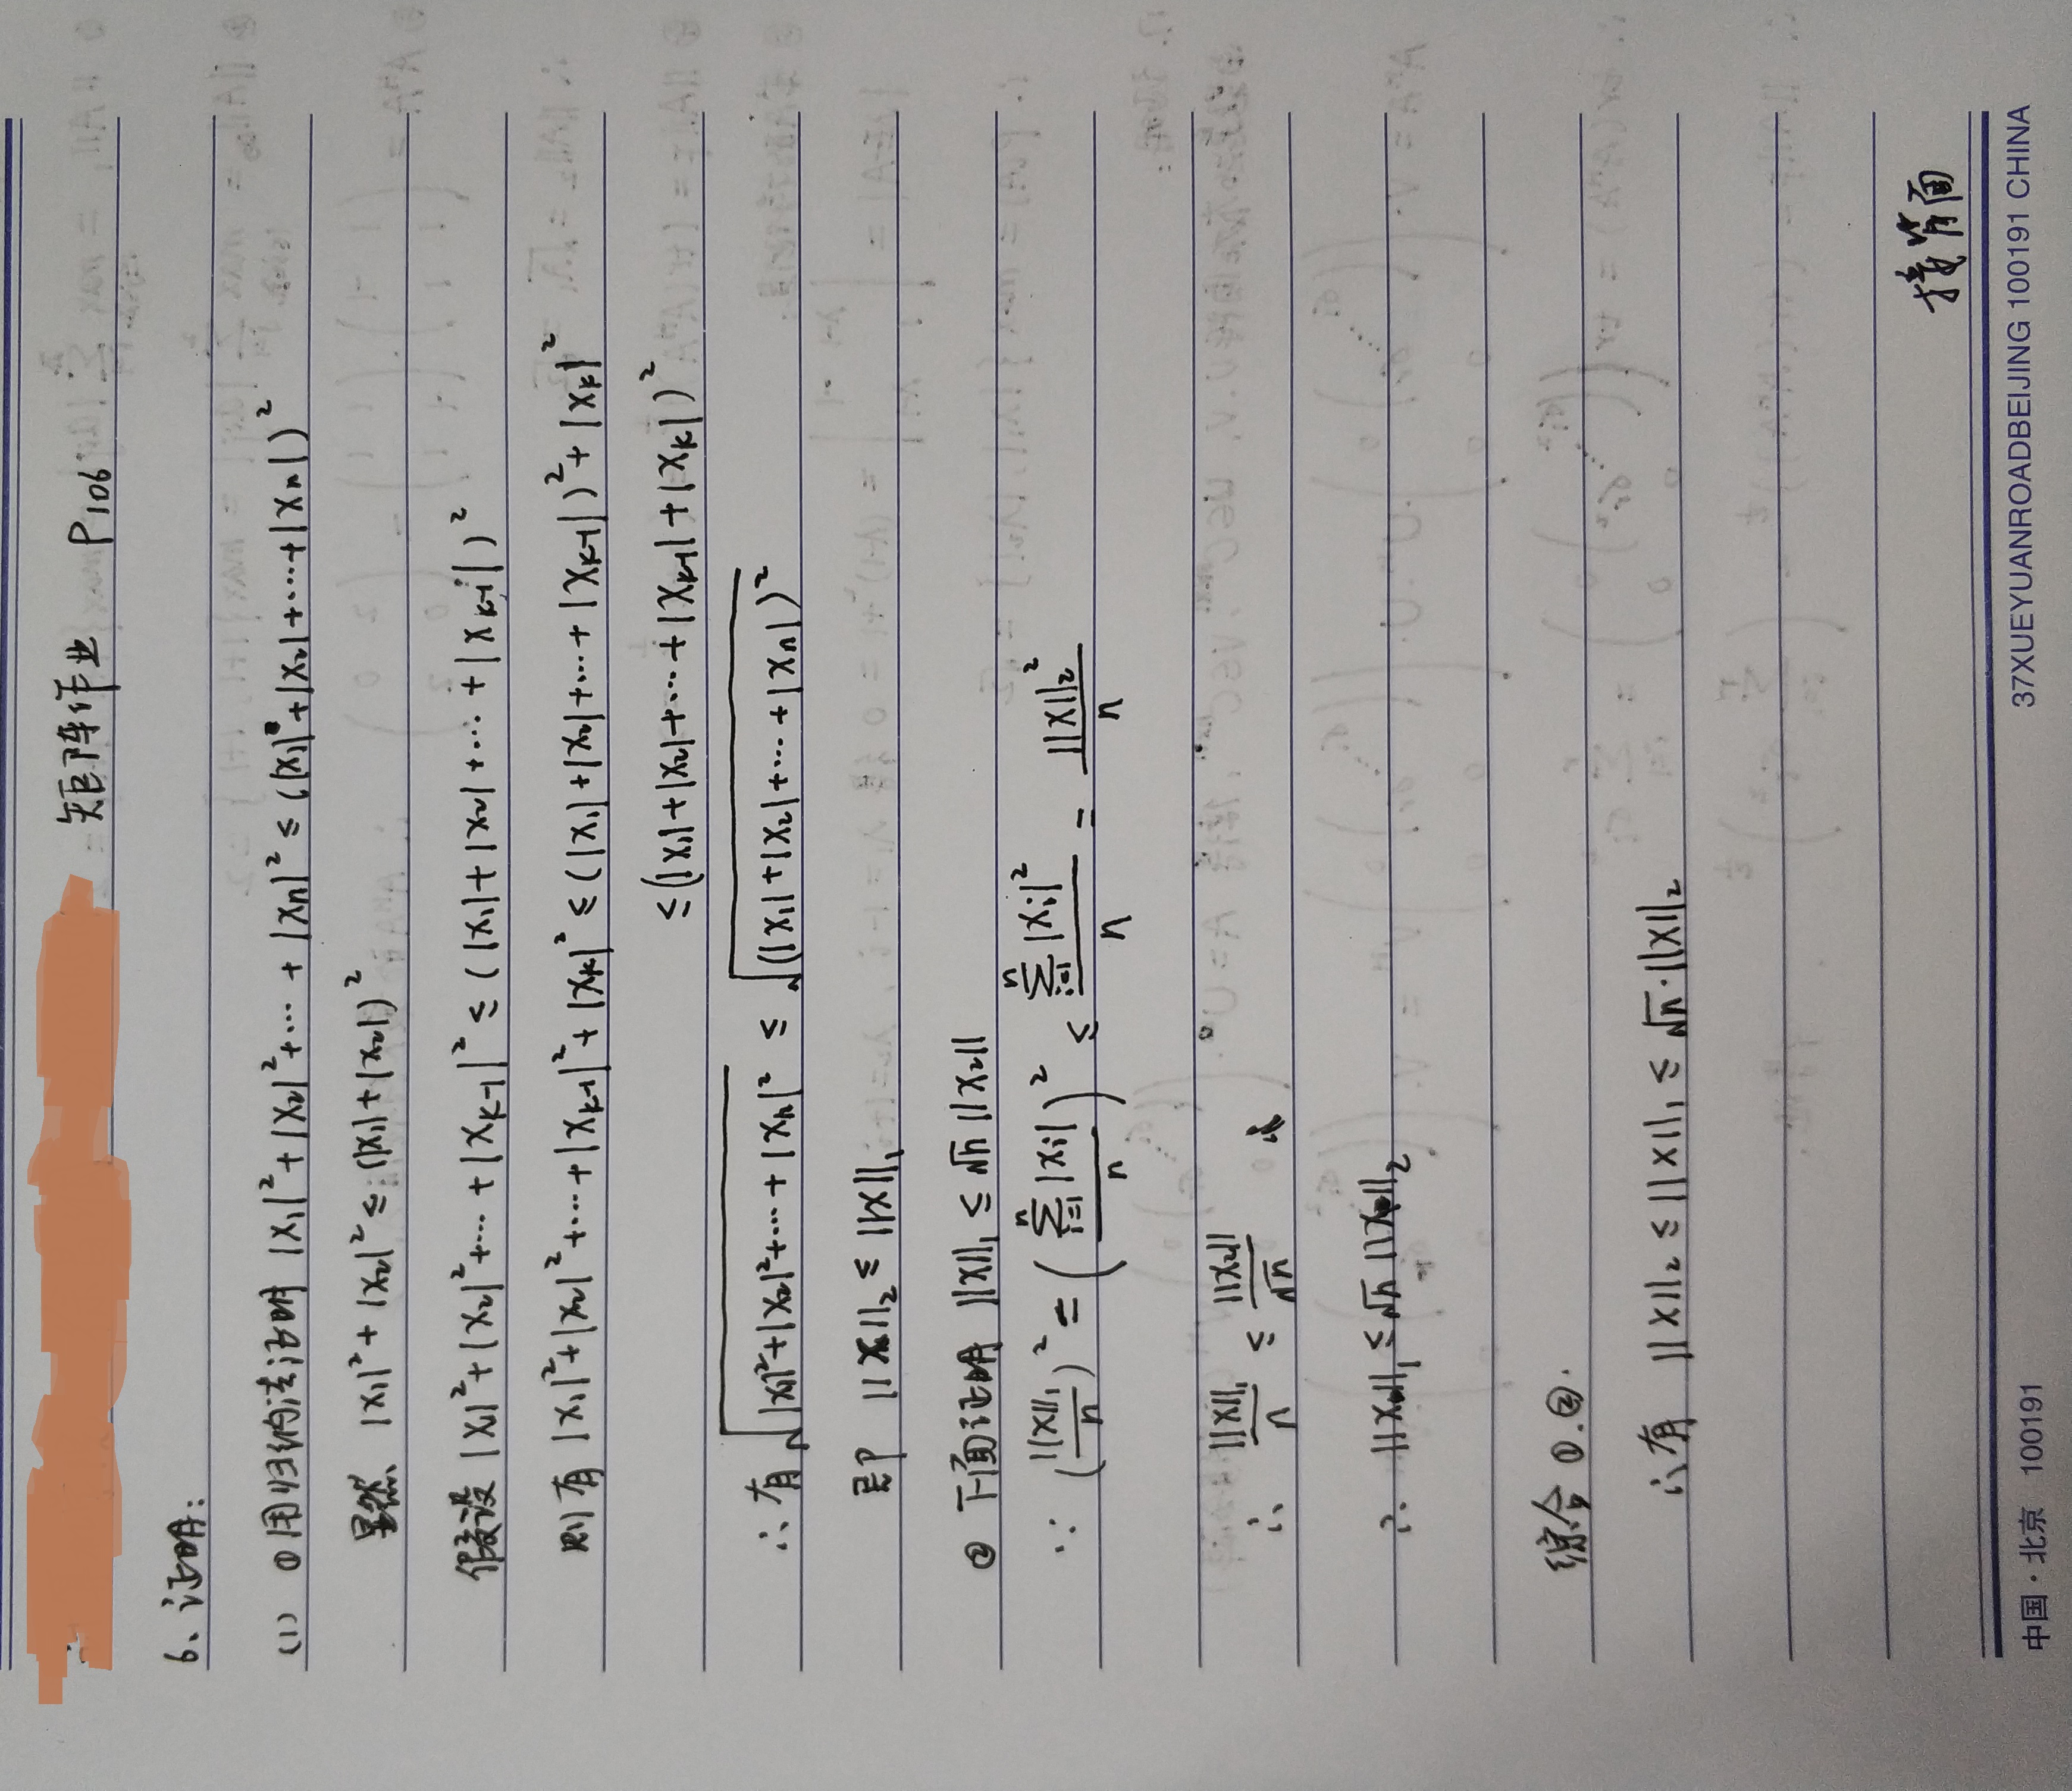 矩阵作业 P106
6、证明:
(1) ①用归纳法证明 |x₁|²+|x₂|²+…+|xₙ|² ≤ (|x₁|+|x₂|+…+|xₙ|)²
显然 |x₁|²+|x₂|² ≤ (|x₁|+|x₂|)²
假设 |x₁|²+|x₂|²+…+|xₖ₋₁|² ≤ (|x₁|+|x₂|+…+|xₖ₋₁|)²
则有 |x₁|²+|x₂|²+…+|xₖ₋₁|²+|xₖ|² ≤ (|x₁|+|x₂|+…+|xₖ₋₁|)²+|xₖ|²
≤ (|x₁|+|x₂|+…+|xₖ₋₁|+|xₖ|)²
∴有 √(|x₁|²+|x₂|²+…+|xₙ|²) ≤ √((|x₁|+|x₂|+…+|xₙ|)²)
即 ||x||₂ ≤ ||x||₁
② 下面证明 ||x||₁ ≤ √n ||x₂||
∵ (||x||₁/n)² = (∑ᵢ₌₁ⁿ|xᵢ|/n)² ≤ ∑ᵢ₌₁ⁿ|xᵢ|²/n = ||x||₂²/n
∴ ||x||₁/n ≤ ||x₂||/√n
∴ ||x||₁ ≤ √n ||x||₂
综合 ①.②.
∴有 ||x||₂ ≤ ||x||₁ ≤ √n·||x||₂
接背面
中国·北京 100191 37XUEYUANROADBEIJING 100191 CHINA